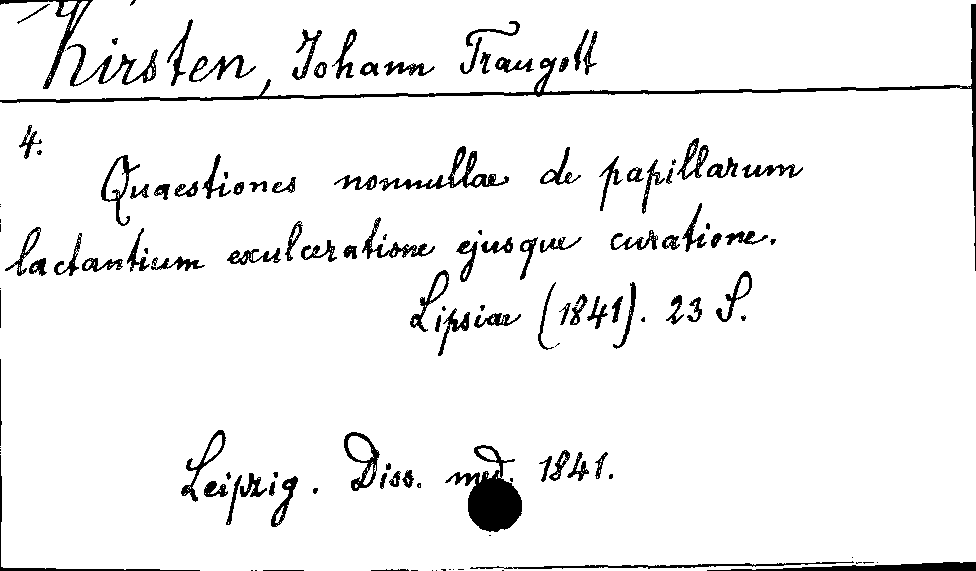 Kirsten, Johann Traugott
4.
Quaestiones nonnullae de papillarum
lactantium exulceratione ejusque curatione.
Lipsiae (1841). 23 S.
Leipzig. Diss. med. 1841.